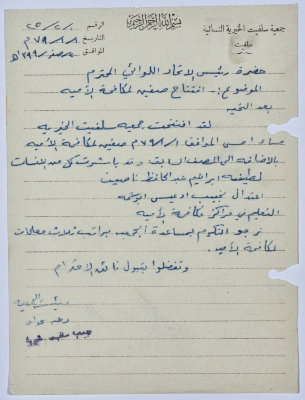 بسم الله الرحمن الرحيم
جمعية سلفيت الخيرية النسائية
سلفيت
الرقم ٢٥/٢/١
التاريخ ٧٩/١/٨م
الموافق صفر ١٣٩٩هـ
حضرة رئيس الاتحاد اللوائي المحترم
الموضوع :- افتتاح صفين لمكافحة الاميه
بعد التحيه
لقد افتتحت جمعيه سلفيت الخيريه
مساء امس الموافق صفين لمكافحة الاميه
بالاضافه الى الصف السابق وقد باشرت كل من الآنسات
لطيفه ابراهيم عبد الحافظ
اعتدال نجيب
التعليم في مراكز مكافحة الاميه
نرجو التكرم بمساعدة الجمعيه براتب ثلاث معلمات
لمكافحة الاميه.
وتفضلوا بقبول فائق الاحترام
الجمعيه
جمعية سلفيت الخيرية